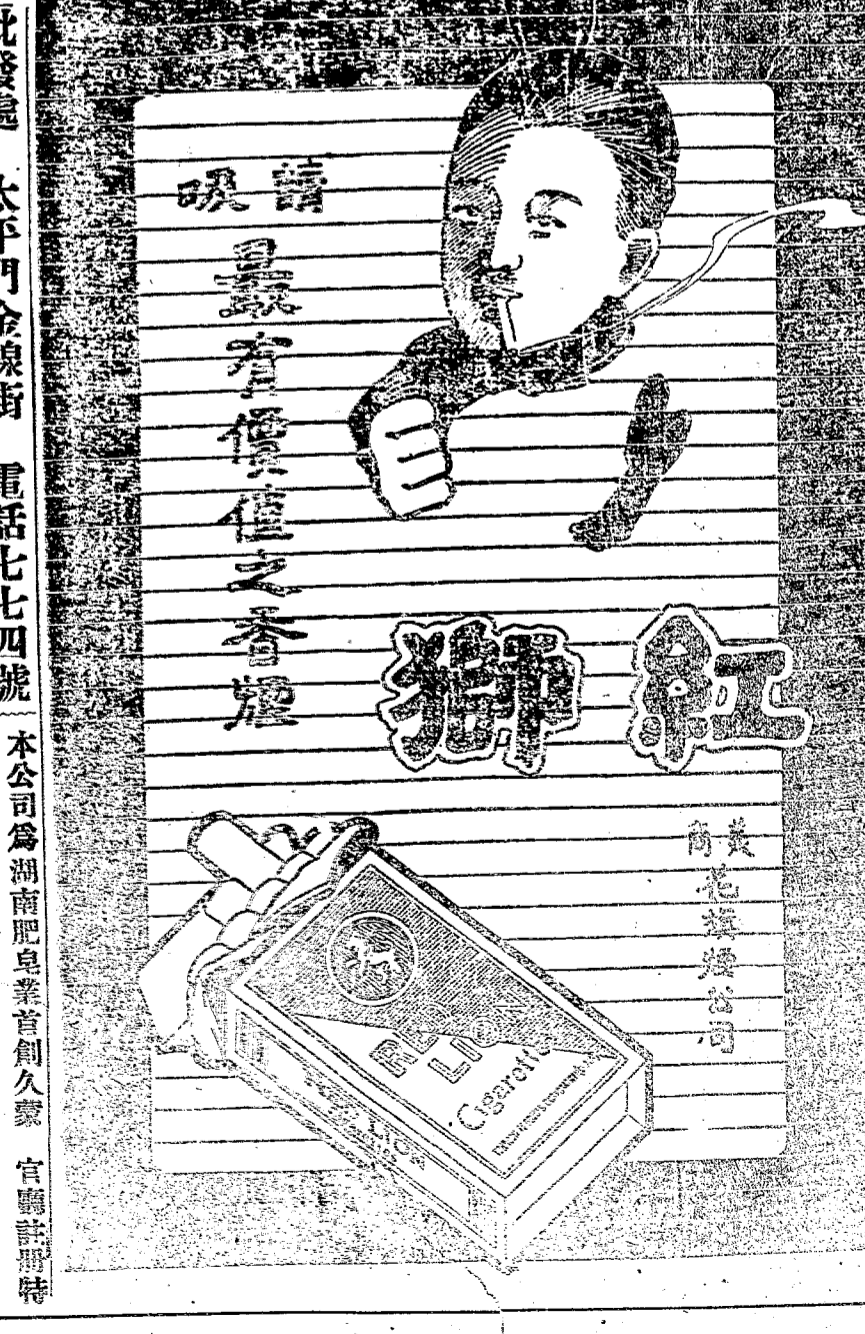 請吸
最有價值之香煙
紅獅
美商
花旗煙公司
RED
LION
Cigarette
LION
批發處 太平門金線街 電話七七四號
本公司爲湖南肥皂業首創久蒙 官廳註冊特